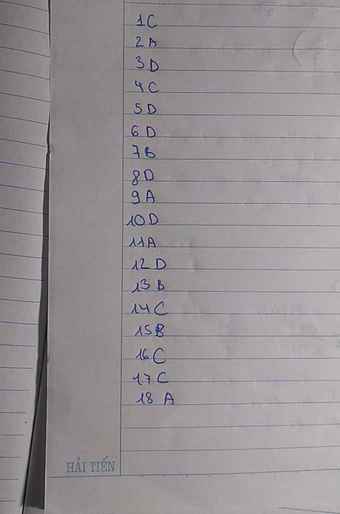 1C
2A
3D
4C
5D
6D
7B
8D
9A
10D
11A
12D
13B
14C
15B
16C
17C
18 A
HẢI TIẾN